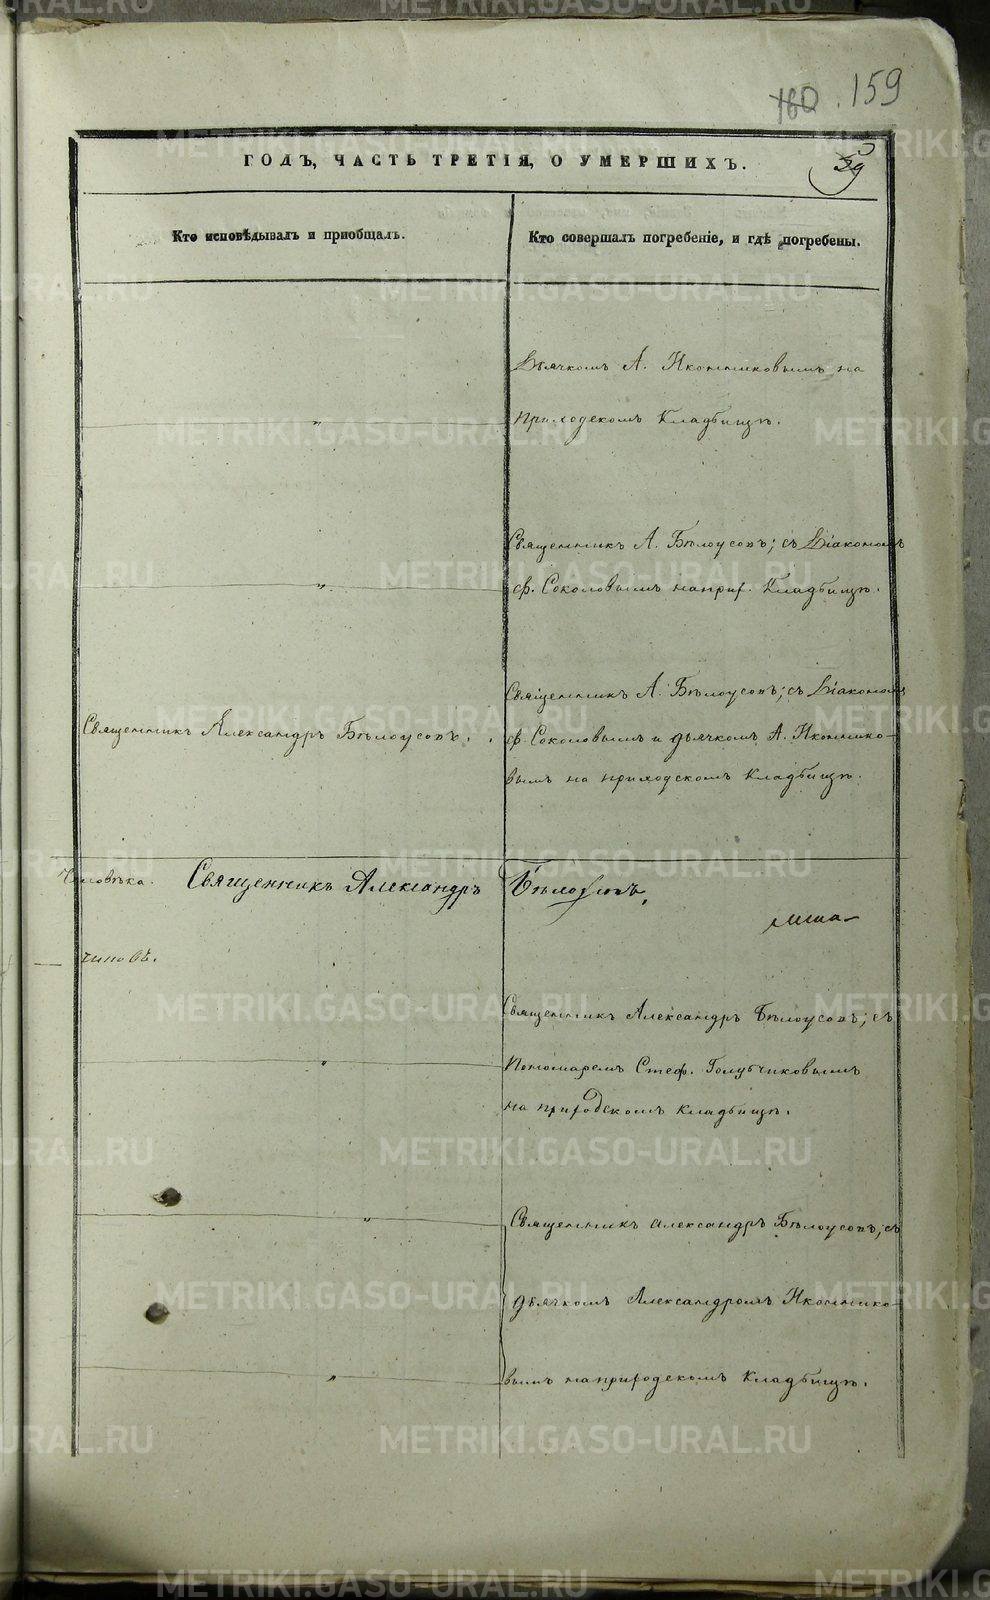 160. 159
ГОДЪ, ЧАСТЬ ТРЕТІЯ, О УМЕРШИХЪ.
Кто исповѣдывалъ и пріобщалъ.
Кто совершалъ погребеніе, и гдѣ погребены.
Дьячкомъ А. Иконниковымъ на
приходскомъ кладбищѣ.
Священникъ А. Бѣлоусовъ; съ Діакономъ
Ф. Соколовымъ на прих. кладбищѣ.
Священникъ Александръ Бѣлоусовъ.
Священникъ А. Бѣлоусовъ; съ Діакономъ
Ф. Соколовымъ и дьячкомъ А. Иконнико-
вымъ на приходскомъ кладбищѣ.
человѣка. Священникъ Александръ Бѣлоусовъ,
чиновъ.
Священникъ Александръ Бѣлоусовъ; съ
Пономаремъ Стеф. Голубчиковымъ
на приходскомъ кладбищѣ.
Священникъ Александръ Бѣлоусовъ; съ
дьячкомъ Александромъ Иконнико-
вымъ на приходскомъ кладбищѣ.
METRIKI.GASO-URAL.RU